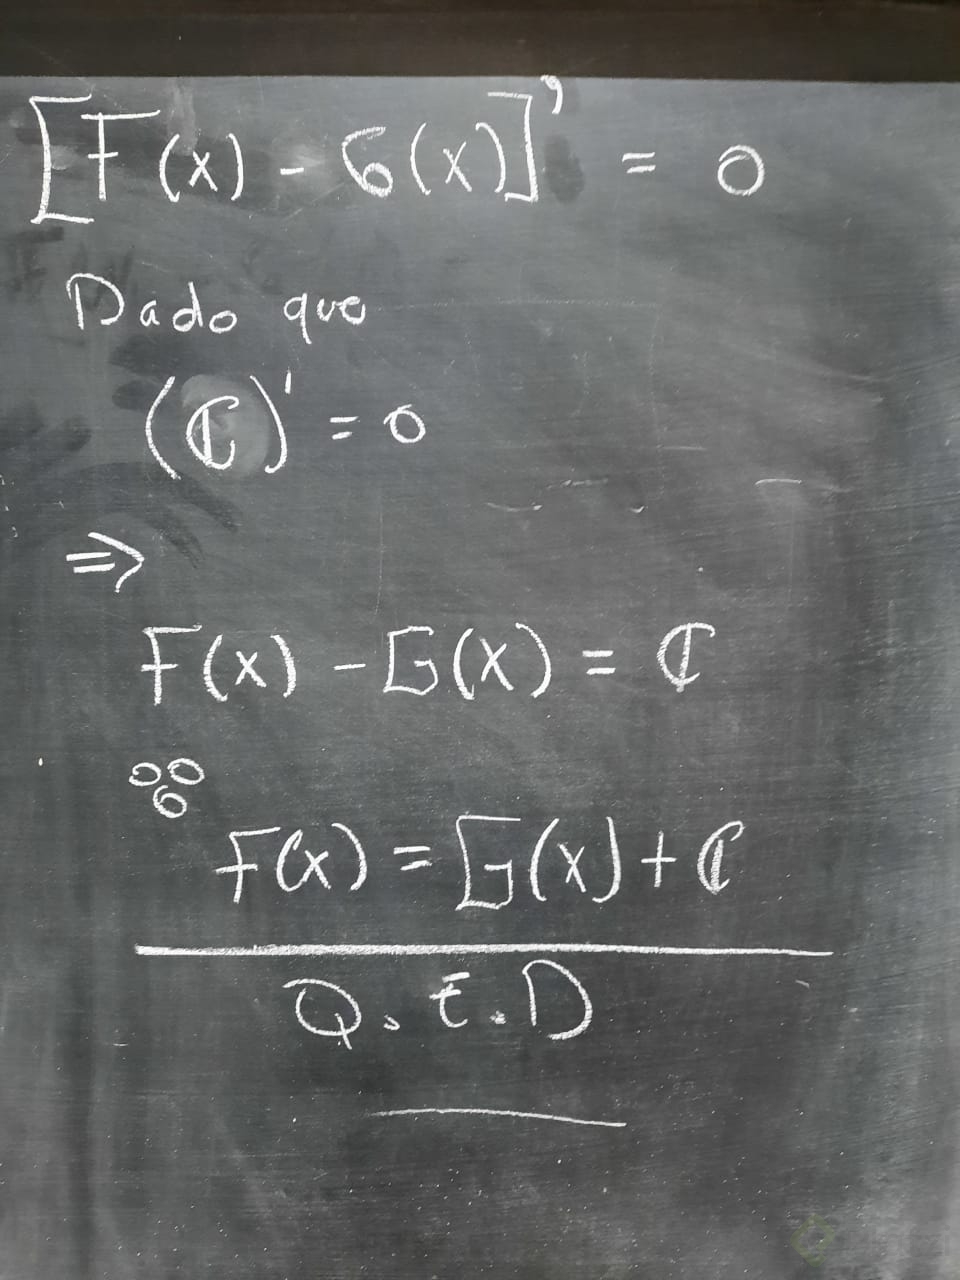 [F(x) - G(x)]' = 0
Dado que
(ℂ)' = 0
⇒
F(x) - G(x) = ℂ
∴
F(x) = G(x) + ℂ
Q.E.D